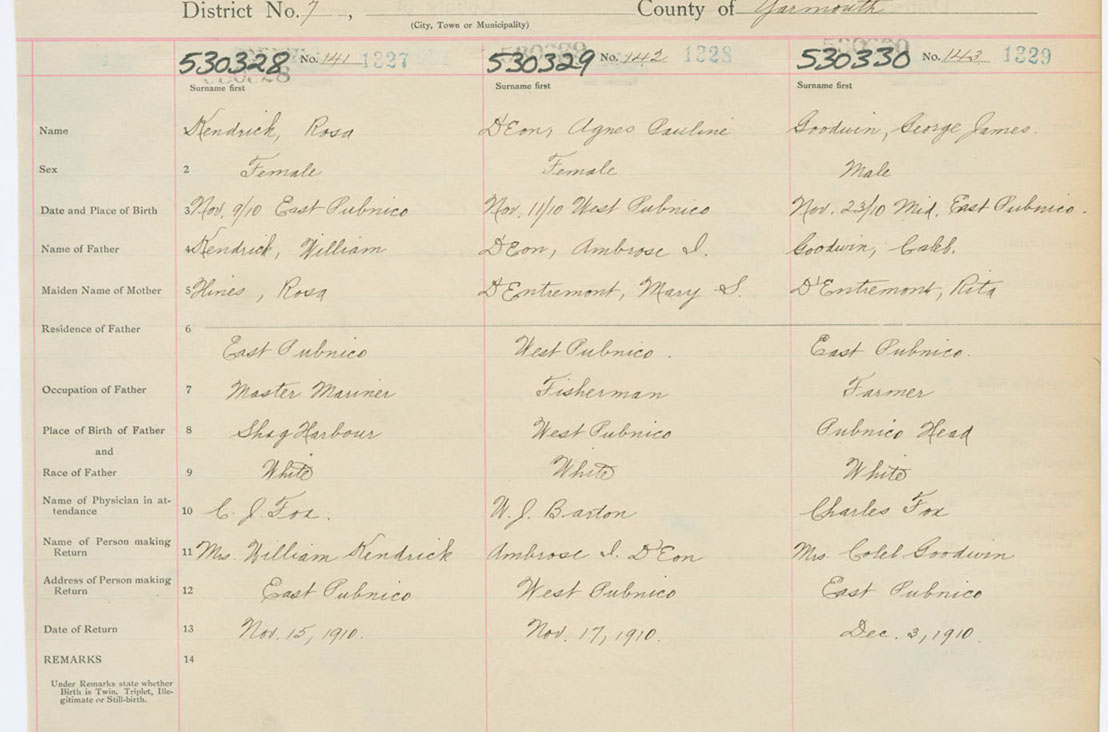 District No. 7, County of Yarmouth
(City, Town or Municipality)
530328 No. 141 1327 530329 No. 142 1328 530330 No. 143 1329
Surname first Surname first Surname first
Name 1 Kendrick, Rosa D'Eon, Agnes Pauline Goodwin, George James.
Sex 2 Female Female Male
Date and Place of Birth 3 Nov. 9/10 East Pubnico Nov. 11/10 West Pubnico Nov. 23/10 Mid. East Pubnico.
Name of Father 4 Kendrick, William D'Eon, Ambrose I. Goodwin, Caleb.
Maiden Name of Mother 5 Hines, Rosa D'Entremont, Mary S. D'Entremont, Rita
Residence of Father 6
East Pubnico West Pubnico. East Pubnico.
Occupation of Father 7 Master Mariner Fisherman Farmer
Place of Birth of Father 8 Shag Harbour West Pubnico Pubnico Head
and
Race of Father 9 White White White
Name of Physician in at-
tendance 10 C. J. Fox. W. J. Barton Charles Fox
Name of Person making
Return 11 Mrs. William Kendrick Ambrose I. D'Eon Mrs Coleb Goodwin
Address of Person making
Return 12 East Pubnico West Pubnico East Pubnico
Date of Return 13 Nov. 15, 1910. Nov. 17, 1910. Dec. 3, 1910.
REMARKS 14
Under Remarks state whether
Birth is Twin, Triplet, Ille-
gitimate or Still-birth.